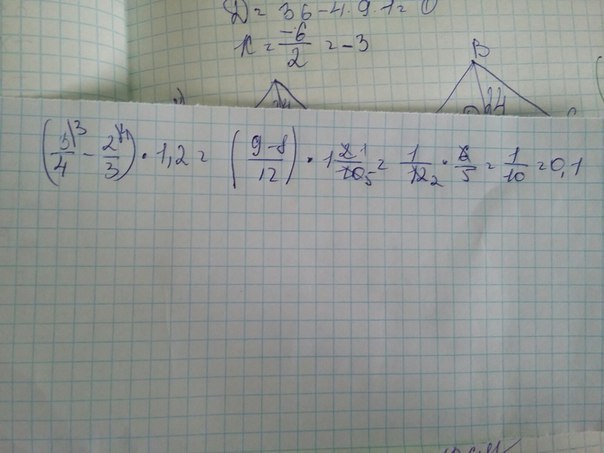 D = 36 - 4 · 9 · 1 = 0
K = -6/2 = -3
B
24
(3/4\3 - 2/3\4) · 1,2 = ((9-8)/12) · 1 2 1/10 5 = 1/12 2 · 6/5 = 1/10 = 0,1